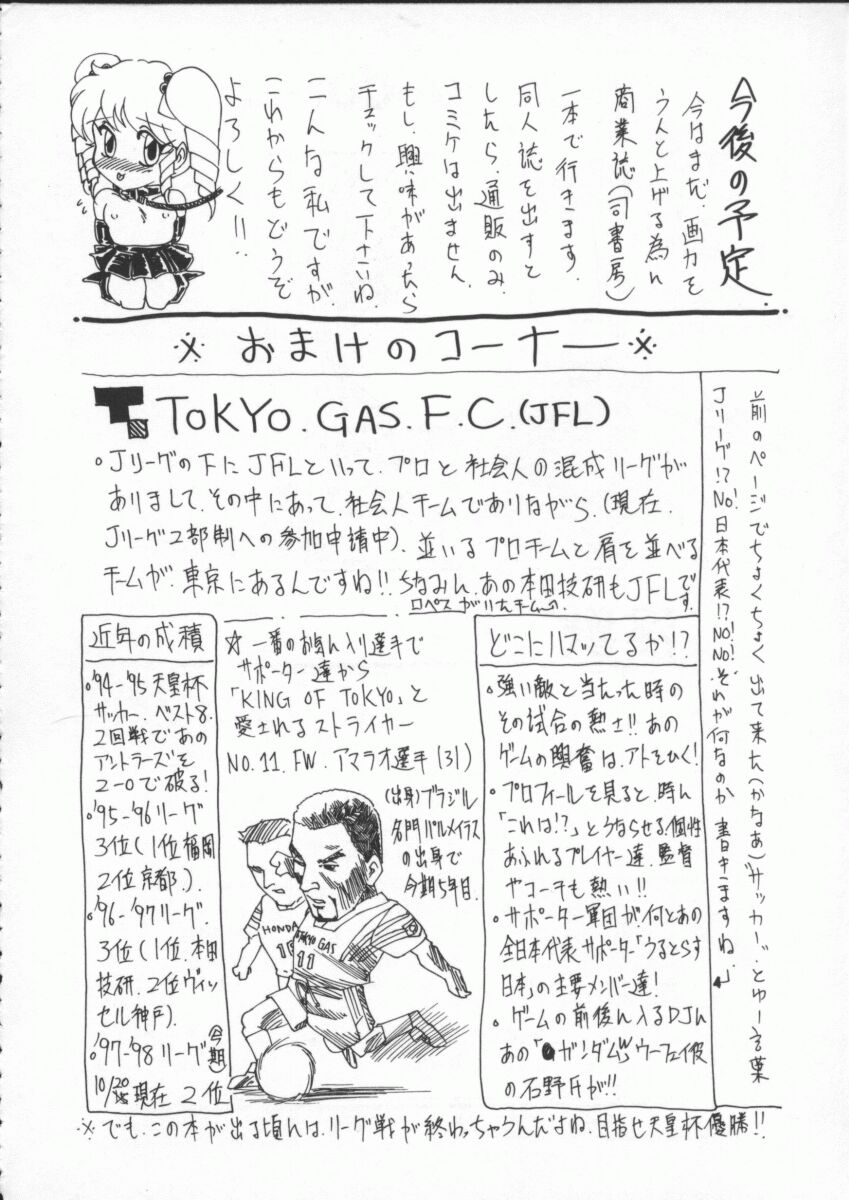 今後の予定
今はまだ、画力を
うんと上げる為に
商業誌(司書房)
一本で行きます。
同人誌を出すと
したら、通販のみ。
コミケは出ません。
もし、興味があったら
チェックして下さいね。
こんな私ですが、
これからもどうぞ
よろしく!!
※ おまけのコーナー ※
前のページでちょくちょく出て来た(かなぁ)"サッカー"とゆー言葉
Jリーグ!?NO!日本代表!?NO!NO!それが何なのか書きますね。
TOKYO.GAS.F.C.(JFL)
○Jリーグの下にJFLといって、プロと社会人の混成リーグが
ありまして、その中にあって、社会人チームでありながら、(現在、
Jリーグ2部制への参加申請中)、並いるプロチームと肩を並べる
チームが、東京にあるんですね!!ちなみに、あの本田技研もJFLです。
ロペスがいたチーム
近年の成積
○'94-'95 天皇杯
サッカー、ベスト8。
2回戦であの
アントラーズを
2-0で破る!
○'95-'96リーグ
3位(1位福岡
2位京都)
○'96-'97リーグ
3位(1位、本田
技研、2位ヴィッ
セル神戸)
○'97-'98リーグ(今期)
10/20現在 2位
☆一番のお気に入り選手で
サポーター達から
「KING OF TOKYO」と
愛されるストライカー
NO.11.FW.アマラオ選手(31)
(出身)ブラジル
名門パルメイラス
の出身で
今期5年目。
HONDA
10
TOKYO GAS
11
どこにハマッてるか!?
○強い敵と当たった時の
その試合の熱さ!!あの
ゲームの興奮は、アトをひく!
○プロフィールを見ると、時に
「これは!?」とうならせる、個性
あふれるプレイヤー達、監督
やコーチも熱い!!
○サポーター軍団が、何とあの
全日本代表サポーター「うるとらす
日本」の主要メンバー達!
○ゲームの前後に入るDJに
あの「ガンダムW」ウーフェイ役
の石野氏が!!
※でも、この本が出る頃には、リーグ戦が終わっちゃうんだよね、目指せ天皇杯優勝!!